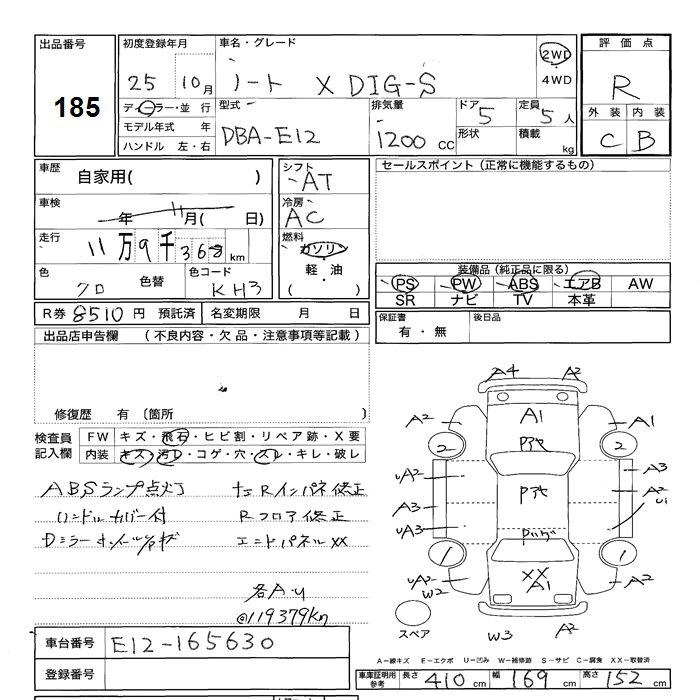 出品番号 185
初度登録年月 25 10月
車名・グレード ノート X DIG-S
2WD 4WD
評価点 R
外装 C 内装 B
ディーラー・並行
モデル年式 年
ハンドル 左・右
型式 DBA-E12
排気量 1200 CC
ドア 5
形状
定員 5人
積載 kg
車歴 自家用( )
シフト AT
セールスポイント(正常に機能するもの)
車検 年 11月( 日)
冷房 AC
走行 11万9千368km
燃料 ガソリン 軽・油 ( )
色 クロ 色替
色コード KH3
装備品(純正品に限る)
PS PW ABS エアB AW
SR ナビ TV 本革
R券 8510円 預託済 名変期限 月 日
保証書 有・無
後日品
出品店申告欄 (不良内容・欠品・注意事項等記載)
修復歴 有〔箇所 〕
検査員記入欄
FW キズ・飛石・ヒビ割・リペア跡・X要
内装 キズ・汚レ・コゲ・穴・スレ・キレ・破レ
ABSランプ点灯
ハンドルカバー付
Rインパネ修正
Rフロア修正
エンドパネルXX
各A・U
@119379km
A4 A2
A2 A1 A1
2 2
UA2 A3
A3 A2
UA3 U1
1 1
UA2 XX A2
W2 A1
W3 A2
スペア
A-線キズ E-エクボ U-凹み W-補修跡 S-サビ C-腐食 XX-取替済
車台番号 E12-165630
登録番号
車庫証明用参考 長さ 410cm 幅 169cm 高さ 152cm